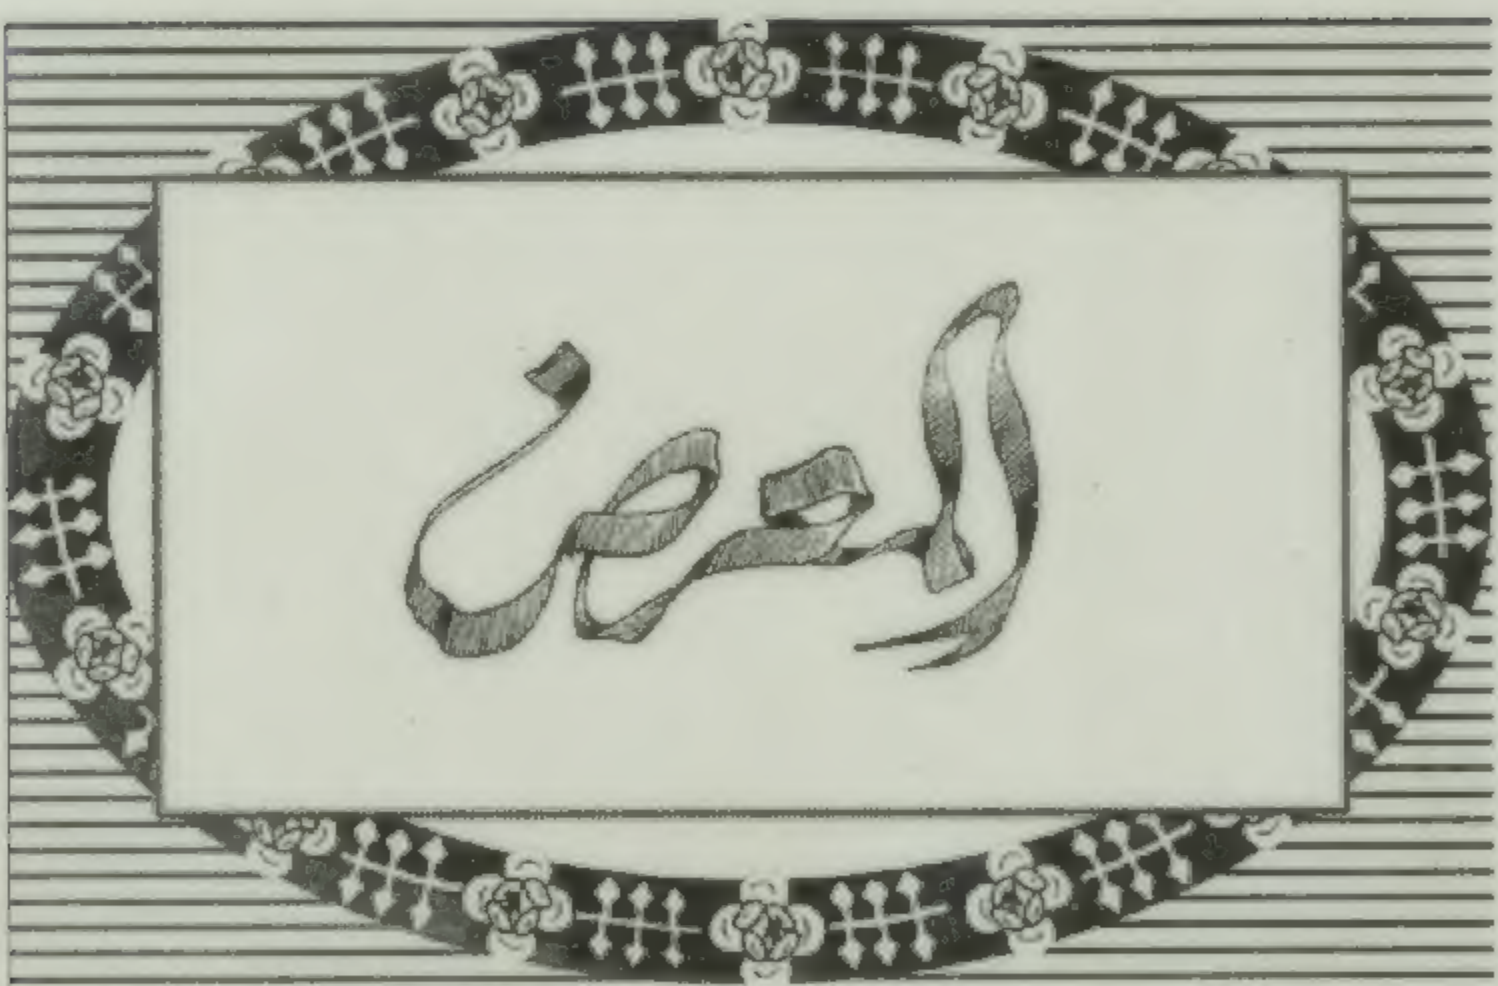 المعرض